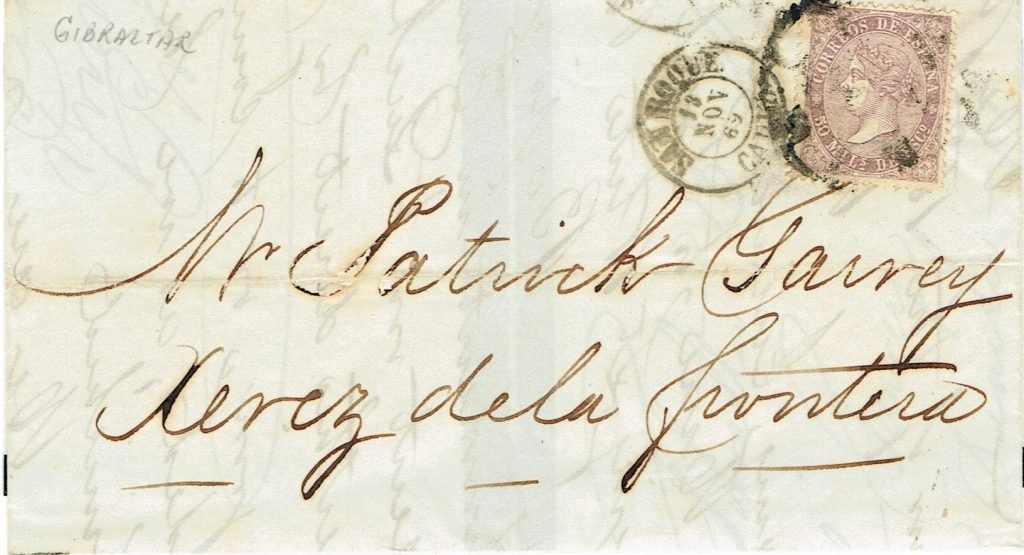 GIBRALTAR
CORREOS DE ESPAÑA
50 MILS DE ESCO
SAN ROQUE
18
NOV
69
CADIZ
Mr Patrick Garvey
Xerez de la frontera